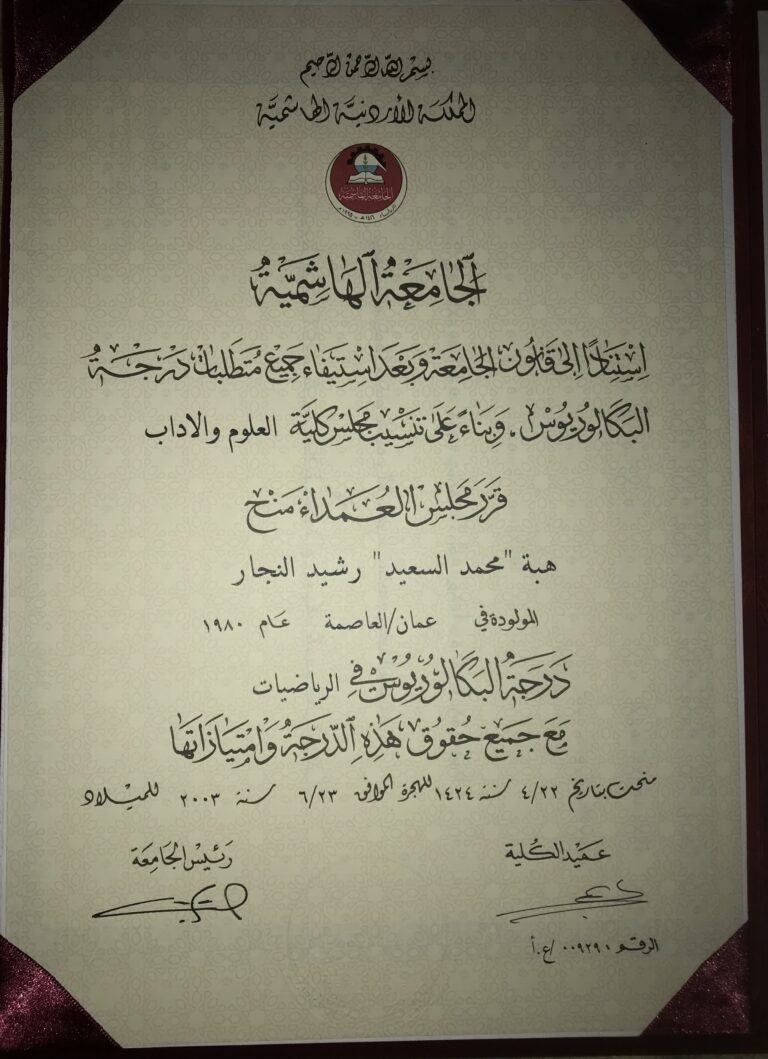 بسم الله الرحمن الرحيم
المملكة الأردنية الهاشمية
الجامعة الهاشمية
الزرقاء ١٤١٦هـ - ١٩٩٥م
الجَامِعَةُ الهَاشِمِيَّةُ
اِسْتِنَادًا اِلىَ قَانُون الجَامِعَة وَبَعْدَ اسْتِيفَاء جَمِيْعِ مُتَطَلبَات دَرَجَةُ
البَكَالوُريُوسْ . وَبِنَاءً عَلَى تنسْيبْ مَجْلِس كُليَّة العلوم والاداب
قَرَر مَجْلِس العُمَداء مَنْح
هبة "محمد السعيد" رشيد النجار
المولودة في عمان/العاصمة عام ١٩٨٠
دَرَجَةُ البَكَالوُريُوسْ فِي الرياضيات
مَعَ جَمِيْع حُقُوق هَذِهِ الدَّرَجَةُ وَامْتِيَازَاتهَا
منحت بتاريخ ٤/٢٢ سنة ١٤٢٤ للهجرة الموافق ٦/٢٣ سنة ٢٠٠٣ للميلاد
عَميد الكُلية رَئيسْ الجَامِعَة
الرقم ٠٠٩٢٩٠ /ع.أ